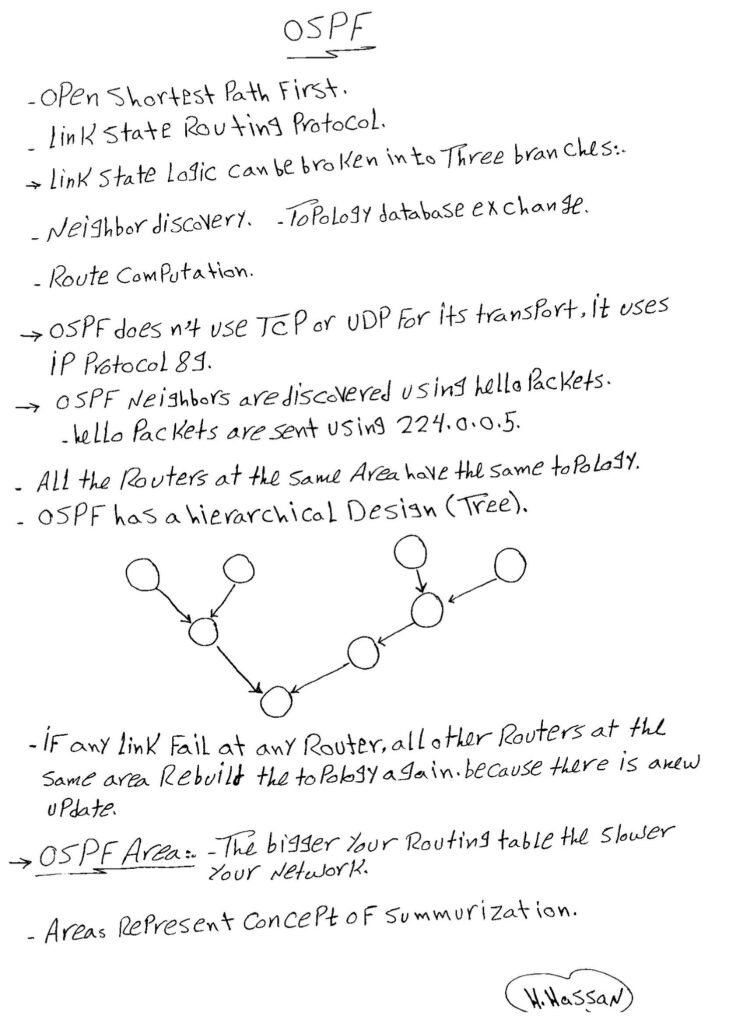 OSPF
- Open Shortest Path First.
- Link State Routing Protocol.
→ Link State Logic can be broken into Three branches:.
- Neighbor discovery. - Topology database exchange.
- Route Computation.
→ OSPF does n't use TCP or UDP For its transport, it uses
iP Protocol 89.
→ OSPF Neighbors are discovered using hello Packets.
- hello Packets are sent using 224.0.0.5.
- All the Routers at the same Area have the same topology.
- OSPF has a hierarchical Design (Tree).
- iF any link Fail at any Router, all other Routers at the
same area Rebuild the topology again. because there is a new
update.
→ OSPF Area:. - The bigger Your Routing table the slower
Your Network.
- Areas Represent concept of summurization.
H.Hassan